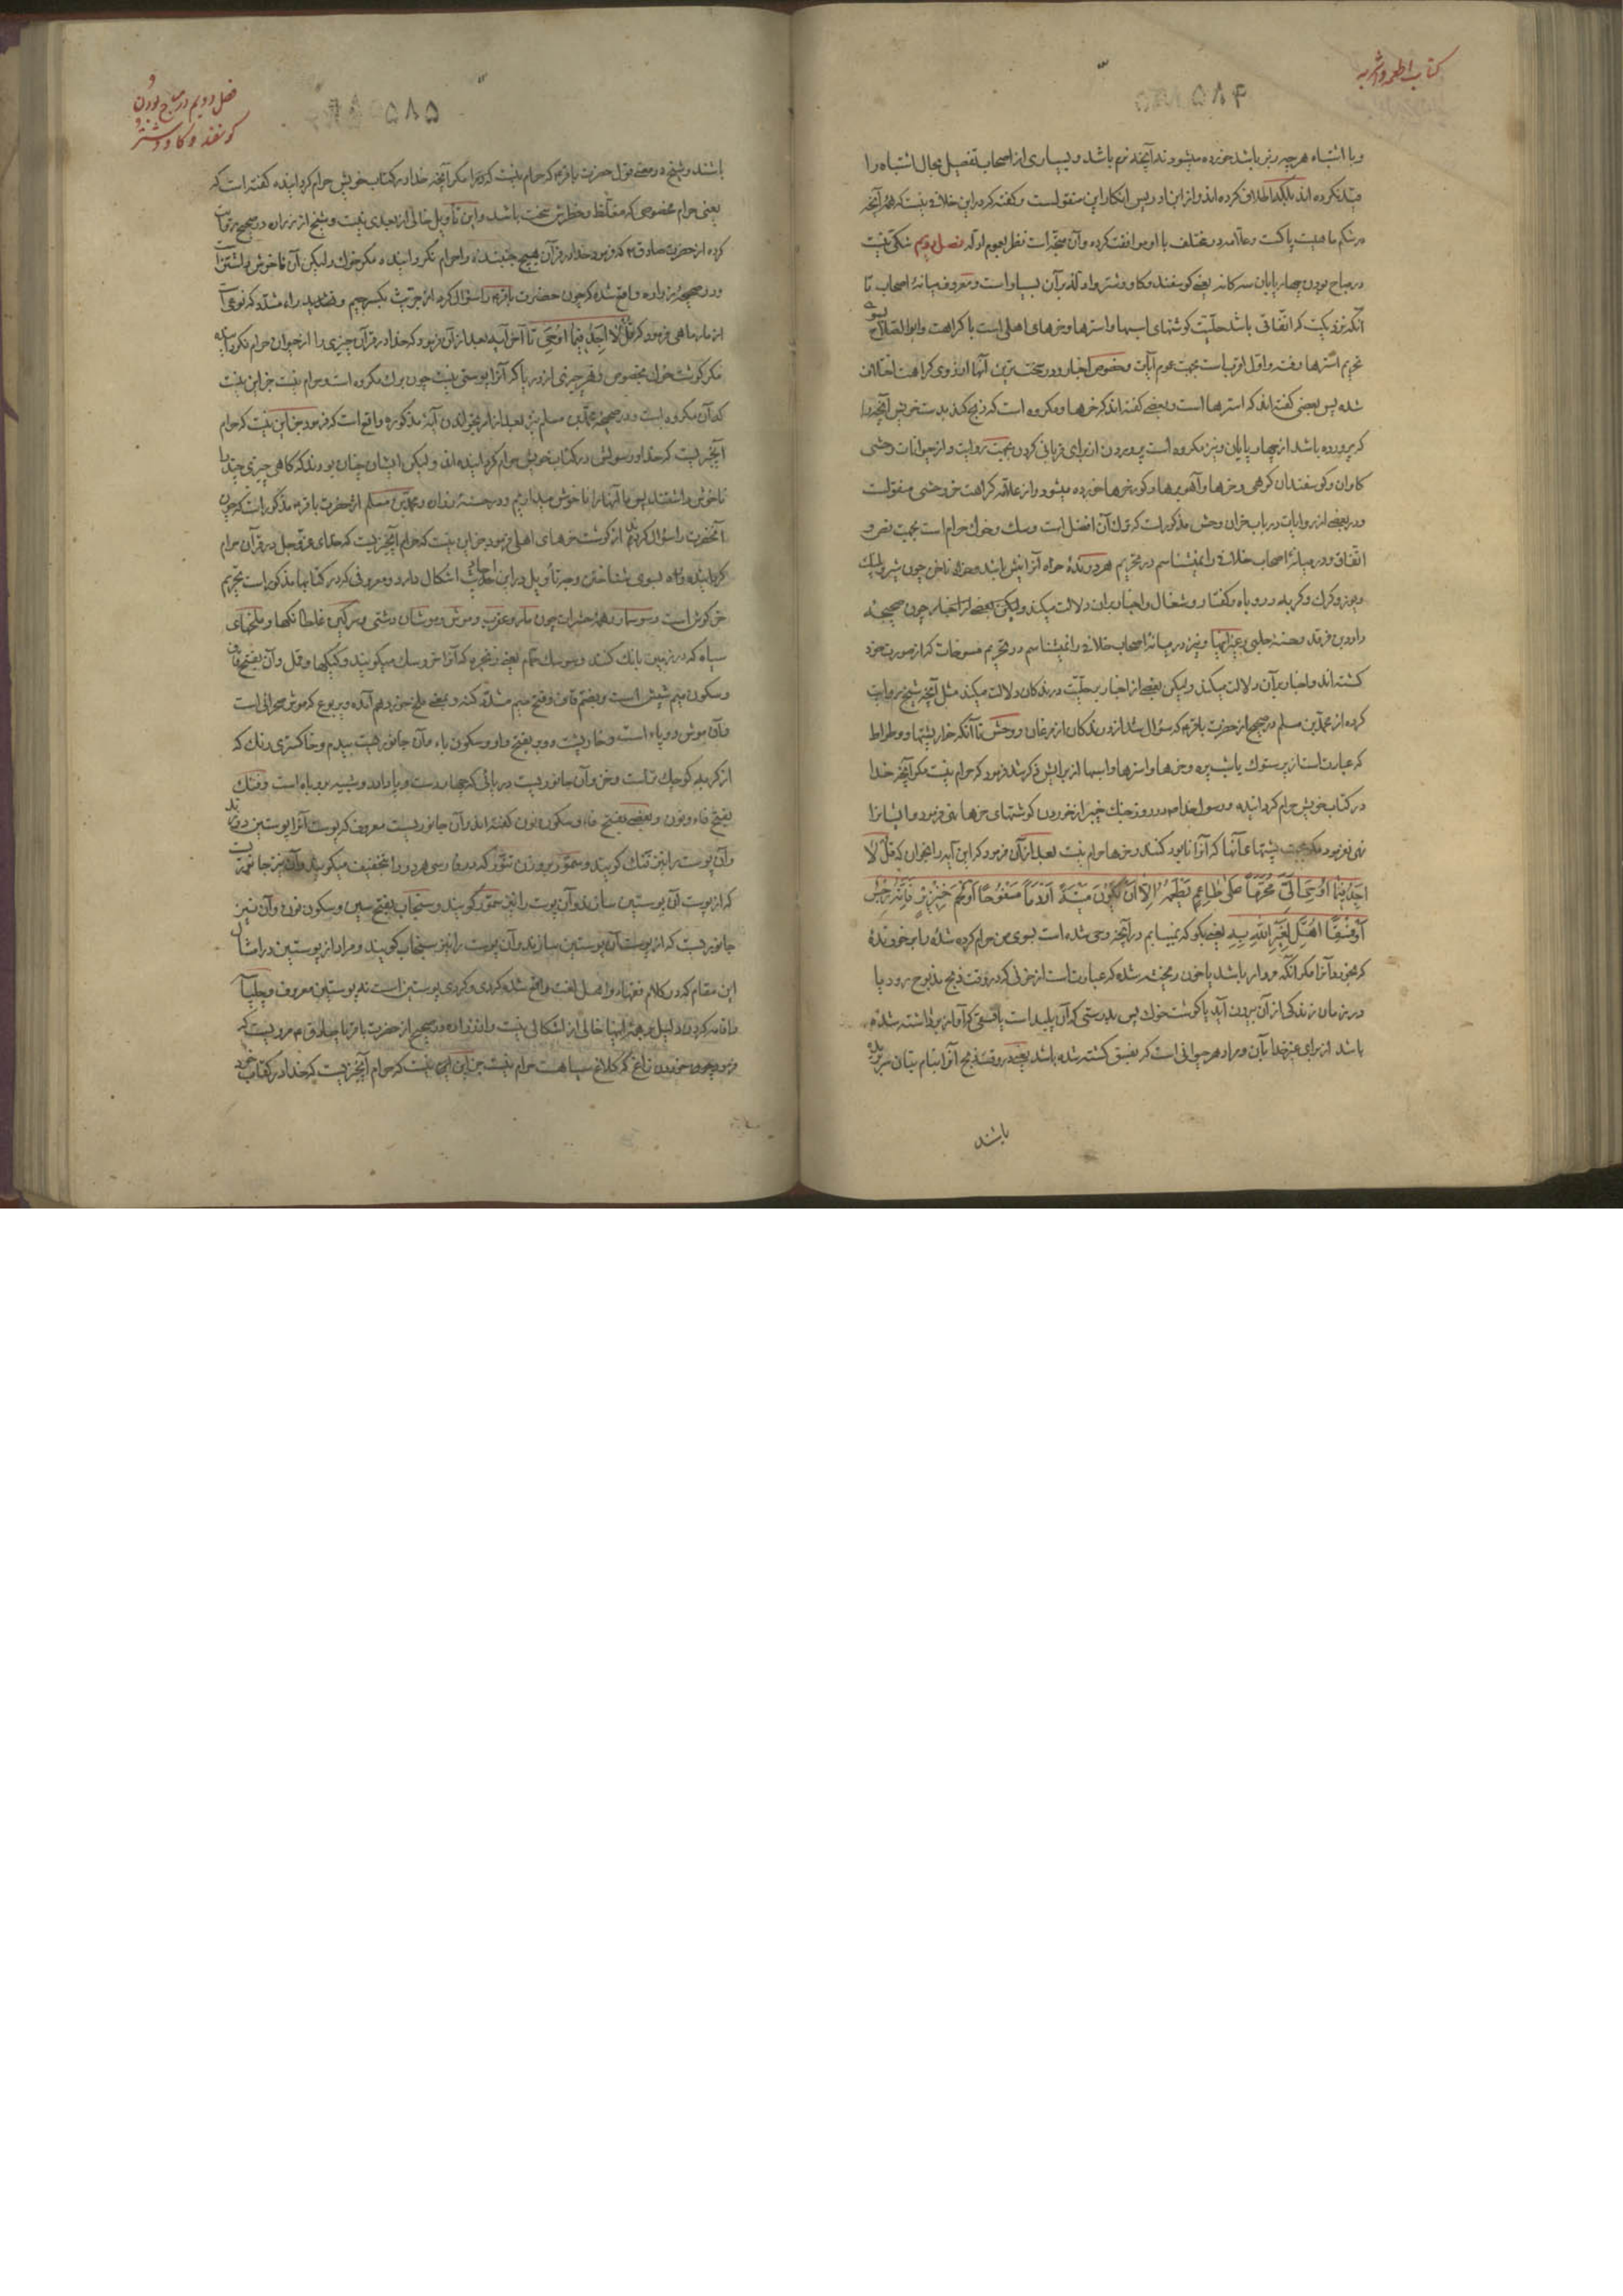 کتاب اطعمه و اشربه
۵۸۴
و با اشتباه هر چه ریز باشد خورده میشود نه آنچه نرم باشد و بسیاری از اصحاب تفصیل بحال اشتباه را
قید نکرده اند بلکه اطلاق کرده اند و از ابن ادریس انکار این منقولست و گفته که در این خلاف نیست که هر آنچه
در شکم ماهیست پاکست و علامه در مختلف با او موافقت کرده و آن متجه است نظر بعموم ادله فصل دویم شکی نیست
در مباح بودن چهارپایان سه گانه یعنی گوسفند و گاو و شتر و ادله بر آن بسیار است و معروف میانهٔ اصحاب تا
آنکه نزدیکست که اتفاقی باشد حلیت گوشتهای اسبها و استرها و خرهای اهلی است با کراهت و ابو الصلاح بسوی
تحریم استرها رفته و اول اقربست بجهت عموم آیات و خصوص اخبار و در سخت ترین آنها از روی کراهت اختلاف
شده پس بعضی گفته اند که استرها است و بعضی گفته اند که خرها و مکروه است که ذبح کند بدست خویش آنچه را
که پرورده باشد از چهارپایان و نیز مکروه است پروردن از برای قربانی کردن بجهت روایت و از حیوانات وحشی
گاوان و گوسفندان کوهی و خرها و آهوبرها و گورخرها خورده میشود و از علامه کراهت خر وحشی منقولست
و در بعضی از روایات در باب خران وحش مذکور است که ترک آن افضل است و سگ و خوک حرام است بجهت نص و
اتفاق و در میانهٔ اصحاب خلاف را نمیشناسم در تحریم هر درنده خواه آنرا نیش باشد و خواه ناخن چون شیر و پلنگ
و یوز و گرگ و گربه و روباه و کفتار و شغال و اخبار بر آن دلالت میکند و لیکن بعضی از اخبار چون صحیحهٔ
داود بن فرقد و حسنهٔ حلبی و غیر اینها و نیز در میانهٔ اصحاب خلاف را نمیشناسم در تحریم مسوخات که از صورت خود
گشته اند و اخبار بر آن دلالت میکند و لیکن بعضی از اخبار بر حلیت درندگان دلالت میکند مثل آنچه شیخ روایت
کرده از محمد بن مسلم در صحیح از حضرت باقر ع که سؤال شد از درندگان از مرغان و وحش تا آنکه خارپشتها و وطواط
که عبارت است از پرستوک یا شب پره و خرها و استرها و اسبها از برایش ذکر شد فرمود که حرام نیست مگر آنچه خدا
در کتاب خویش حرام گردانیده و رسول خدا ص در روز جنک خیبر از خوردن گوشتهای خرها نهی فرمود و ایشانرا
نهی نفرمود مگر بجهت پشتهای آنها که آنرا نابود کنند و خرها حرام نیست بعد از آن فرمود که این آیه را بخوان که قُلْ لٰا
اَجِدُ فِیمٰا اُوحِیَ اِلَیَّ مُحَرَّمًا عَلیٰ طٰاعِمٍ یَطْعَمُهُ اِلّٰا اَنْ یَکُونَ مَیْتَةً اَوْ دَمًا مَسْفُوحًا اَوْ لَحْمَ خِنْزِیرٍ فَاِنَّهُ رِجْسٌ
اَوْ فِسْقًا اُهِلَّ لِغَیْرِ اللّٰهِ بِهِ یعنی بگو که نمییابم در آنچه وحی شده است بسوی من حرام کرده شده را بر خورندهٔ
که بخورد آنرا مگر آنکه مردار باشد یا خون ریخته شده که عبارت است از خونی که در وقت ذبح مذبوح رود یا
در زمان زندگی از آن بیرون آید یا گوشت خوک پس بدرستی که آن پلید است یا فسقی که آواز برداشته شده
باشد از برای غیر خدا بآن و مراد هر حیوانی است که بفسق کشته شده باشد یعنی در وقت ذبح آنرا بنام بتان سر بریده
باشند
فصل دویم در مباح بودن
گوسفند و گاو و شتر
۵۸۵
باشند و شیخ ره در معنی قول حضرت باقر ع که حرام نیست گفته مگر آنچه خدا در کتاب خویش حرام گردانیده گفته است که
یعنی حرام مخصوصی که مغلظ و خطرش سخت باشد و این تأویل خالی از بعدی نیست و شیخ از زراره در صحیح روایت
کرده از حضرت صادق ع که فرمود خدا در قرآن هیچ جنبنده را حرام نگردانیده مگر خوک و لیکن آن ناخوش داشتن است
و در صحیحهٔ زراره واقع شده که چون حضرت باقر ع را سؤال کرد از جریث بکسر جیم و تشدید راء مشدد که نوعی است
از مار ماهی فرمود که قُلْ لٰا اَجِدُ فِیمٰا اُوحِیَ تا آخر آیه بعد از آن فرمود که خدا در قرآن چیزی را از حیوان حرام نگردانیده
مگر گوشت خوک بخصوص و هر چیزی از دریا که آنرا پوستی نیست چون برک مکروه است و حرام نیست جز این نیست
که آن مکروه است و در صحیحهٔ محمد بن مسلم نیز بعد از امر بخواندن آیهٔ مذکوره واقع است که فرمود جز این نیست که حرام
آنچیزیست که خدا و رسولش در کتاب خویش حرام گردانیده اند و لیکن ایشان چنان بودند که گاهی چیزی چند را
ناخوش داشتند پس ما آنها را ناخوش میداریم و در حسنهٔ زراره و محمد بن مسلم از حضرت باقر ع مذکور است که چون
آنحضرت را سؤال کردند از گوشت خرهای اهلی فرمود جز این نیست که حرام آنچیزیست که خدای عز و جل در قرآن حرام
گردانیده و راه بسوی شناختن وجه تأویل در این احادیث اشکال دارد و معروفی که در کتابها مذکور است تحریم
خرگوش است و سوسمار و همهٔ حشرات چون مار و عقرب و موش و موشان دشتی و سرگین غلطانکها و ملخهای
سیاه که در زمین بانگ کنند و سوسک حمام یعنی زنجره که آنرا خروسک میگویند و کیکها و قمل و آن بفتح قاف
و سکون میم شپش است و بضم قاف و فتح میم مشدد کنه و بمعنی ملخ خورد هم آمده و یربوع که موش صحرائی است
و آن موش دو پاء است و خارپشت و وبر بفتح واو و سکون باء و آن جانوریست بیدم و خاکستری رنگ که
از گربه کوچک تر است و خز و آن جانوریست دریائی که چهار دست و پا دارد و شبیه بروباه است و فنک
بفتح فاء و نون و بعضی بفتح فاء و سکون نون گفته اند و آن جانوریست معروف که پوست آنرا پوستین دوزند
و آن پوست را نیز فنک گویند و سمور بر وزن تنور که در فارسی هر دو را بتخفیف میگویند و آن نیز جانوریست
که از پوست آن پوستین سازند و آن پوست را نیز سمور گویند و سنجاب بفتح سین و سکون نون و آن نیز
جانوریست که از پوست آن پوستین سازند و آن پوست را نیز سنجاب گویند و مراد از پوستین در امثال
این مقام که در کلام فقهاء و اهل لغت واقع شده کردی و کردی پوستین است نه پوستین معروف و چلپاسه
و اقامه کردن دلیل بر همهٔ اینها خالی از اشکالی نیست و از زراره در صحیح از حضرت باقر یا صادق ع مرویست که
فرمود خوردن زاغ که کلاغ سیاهست حرام نیست جز این نیست که حرام آنچیزیست که خدا در کتاب خود